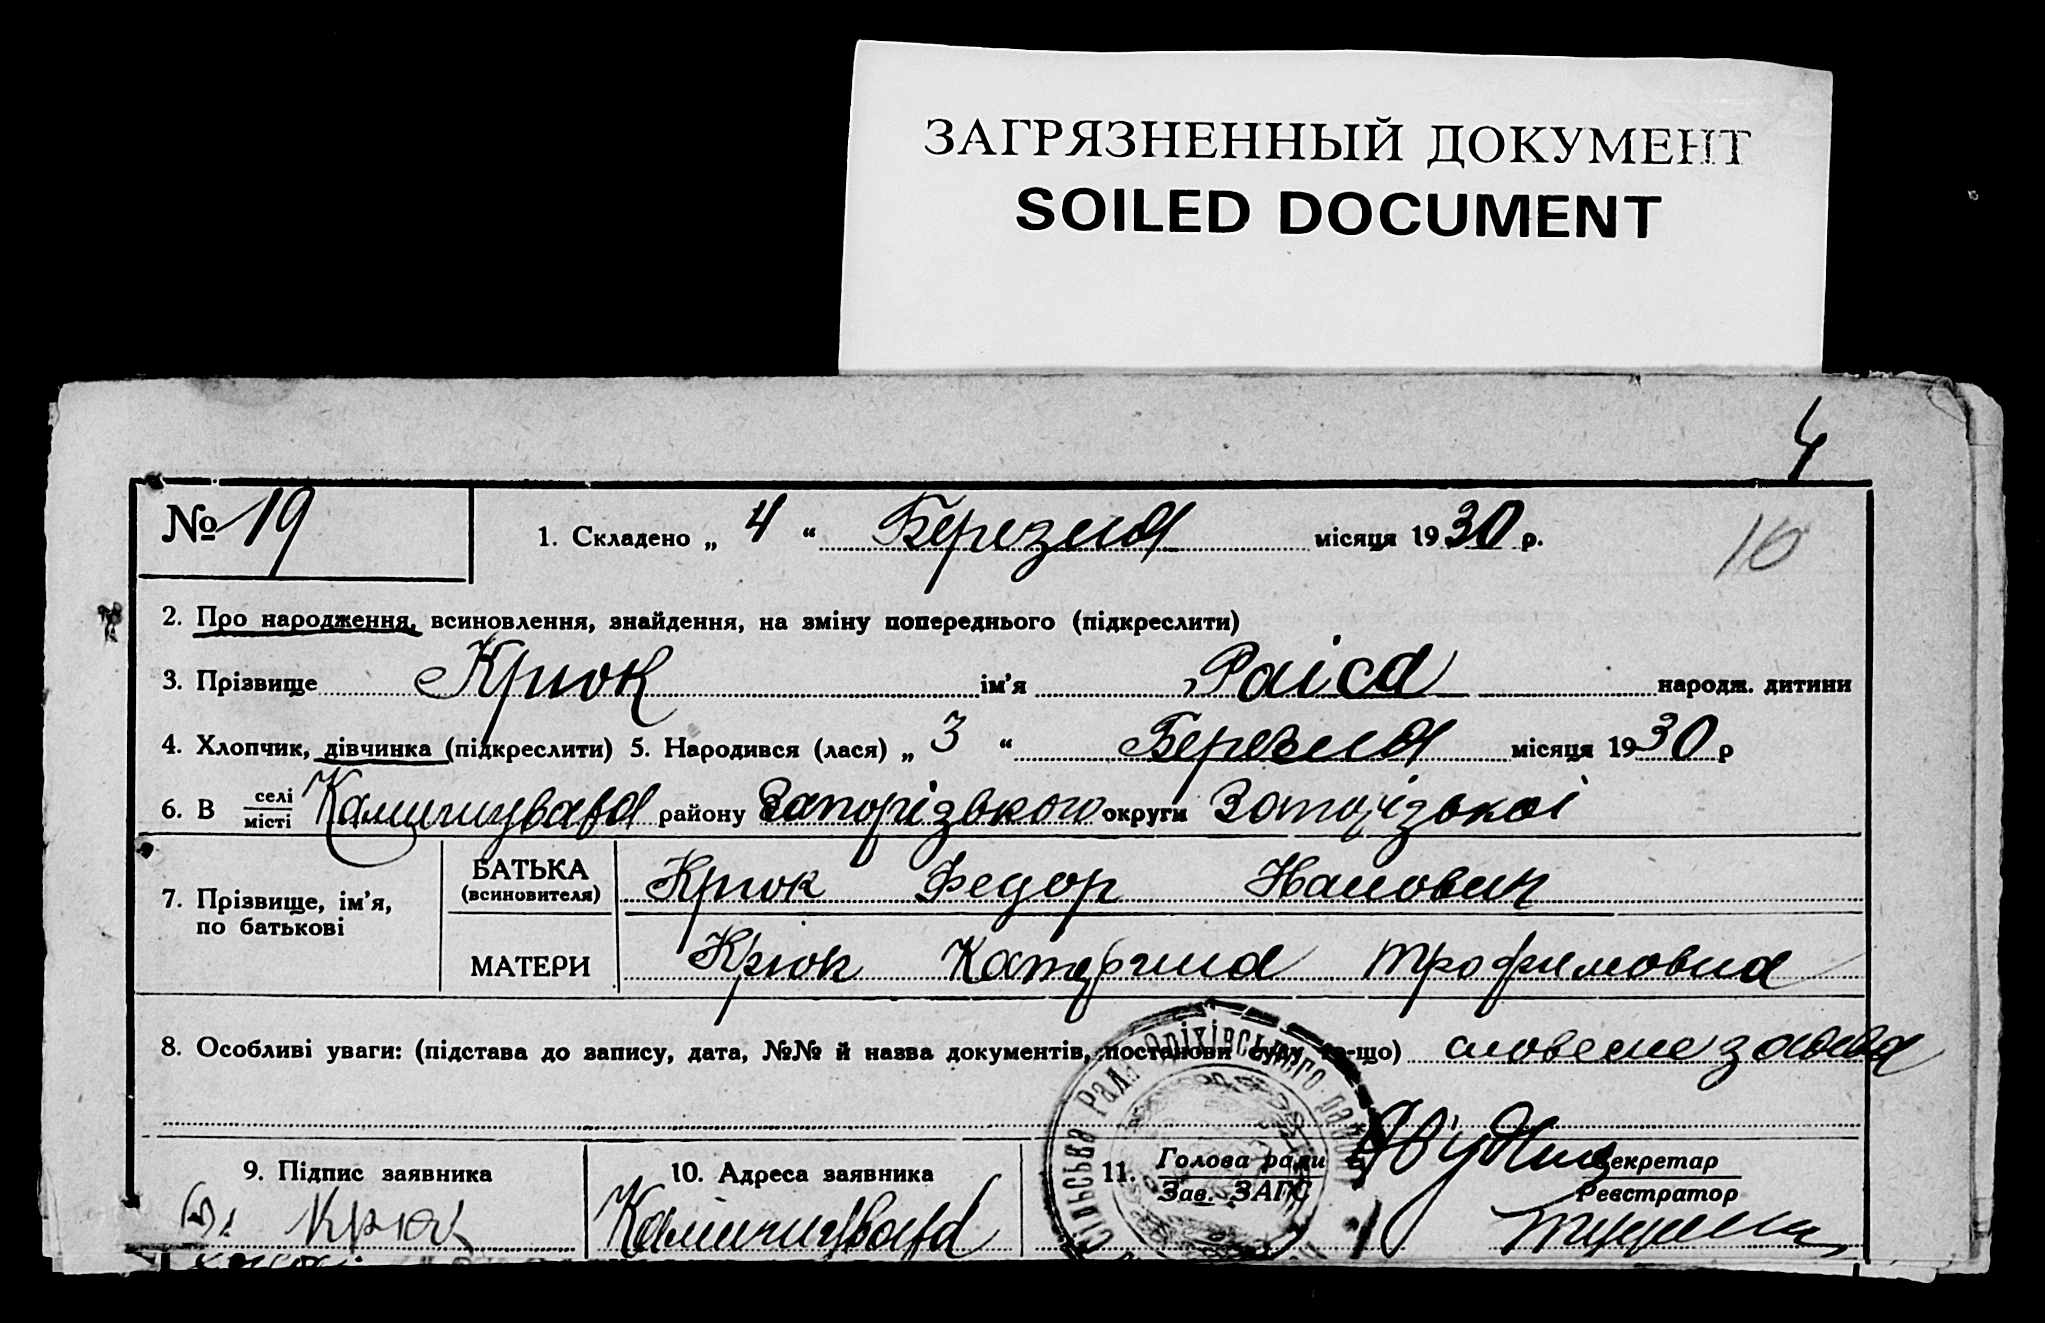 ЗАГРЯЗНЕННЫЙ ДОКУМЕНТ
SOILED DOCUMENT
4
№ 19
1. Складено „ 4 “ Березня місяця 1930 р.
10
2. Про народження, всиновлення, знайдення, на зміну попереднього (підкреслити)
3. Прізвище Крюк ім’я Раіса народж. дитини
4. Хлопчик, дівчинка (підкреслити) 5. Народився (лася) „ 3 “ Березня місяця 1930 р
6. В селі місті району Запорізького округи Запорізькоі
7. Прізвище, ім’я, по батькові
БАТЬКА (всиновителя) Крюк Федор
МАТЕРИ Крюк Катерина Трофимовна
8. Особливі уваги: (підстава до запису, дата, №№ й назва документів, постанови суду то-що) словесне заява
9. Підпис заявника
10. Адреса заявника
11. Голова ради Зав. ЗАГС
Секретар Реєстратор
Крюк
Сільська Рада Оріхівського району